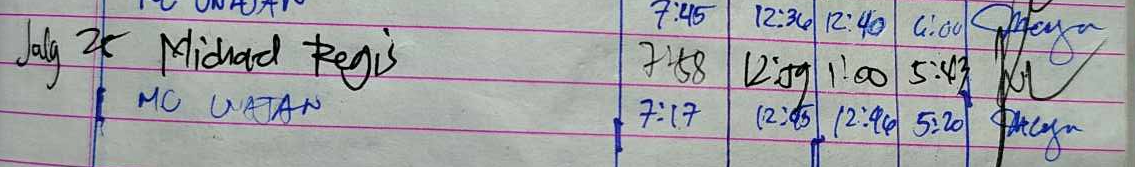 MC UNATAN 7:45 12:36 12:40 6:00
July 25 Michael Regis 7:58 12:59 1:00 5:43
MC UNATAN 7:17 12:45 12:46 5:20